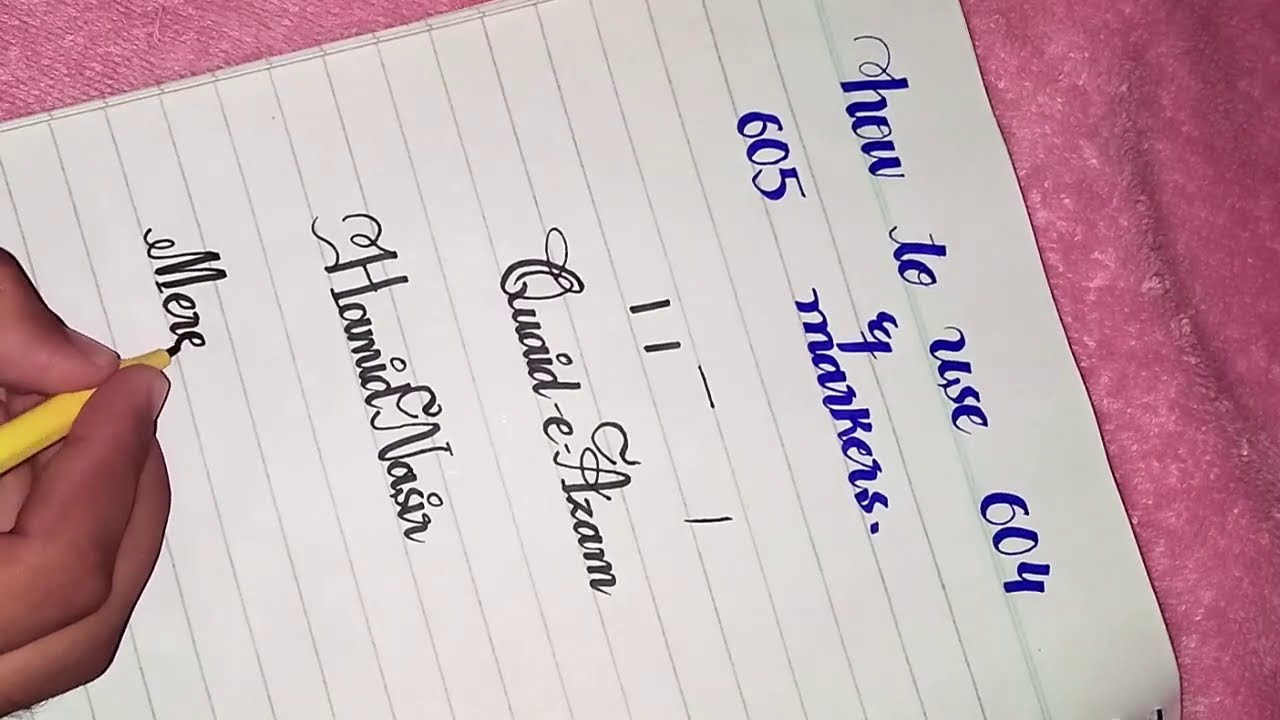 how to use 604
605 & markers.
Quaid-e-Azam
Hamid Nasir
Mere